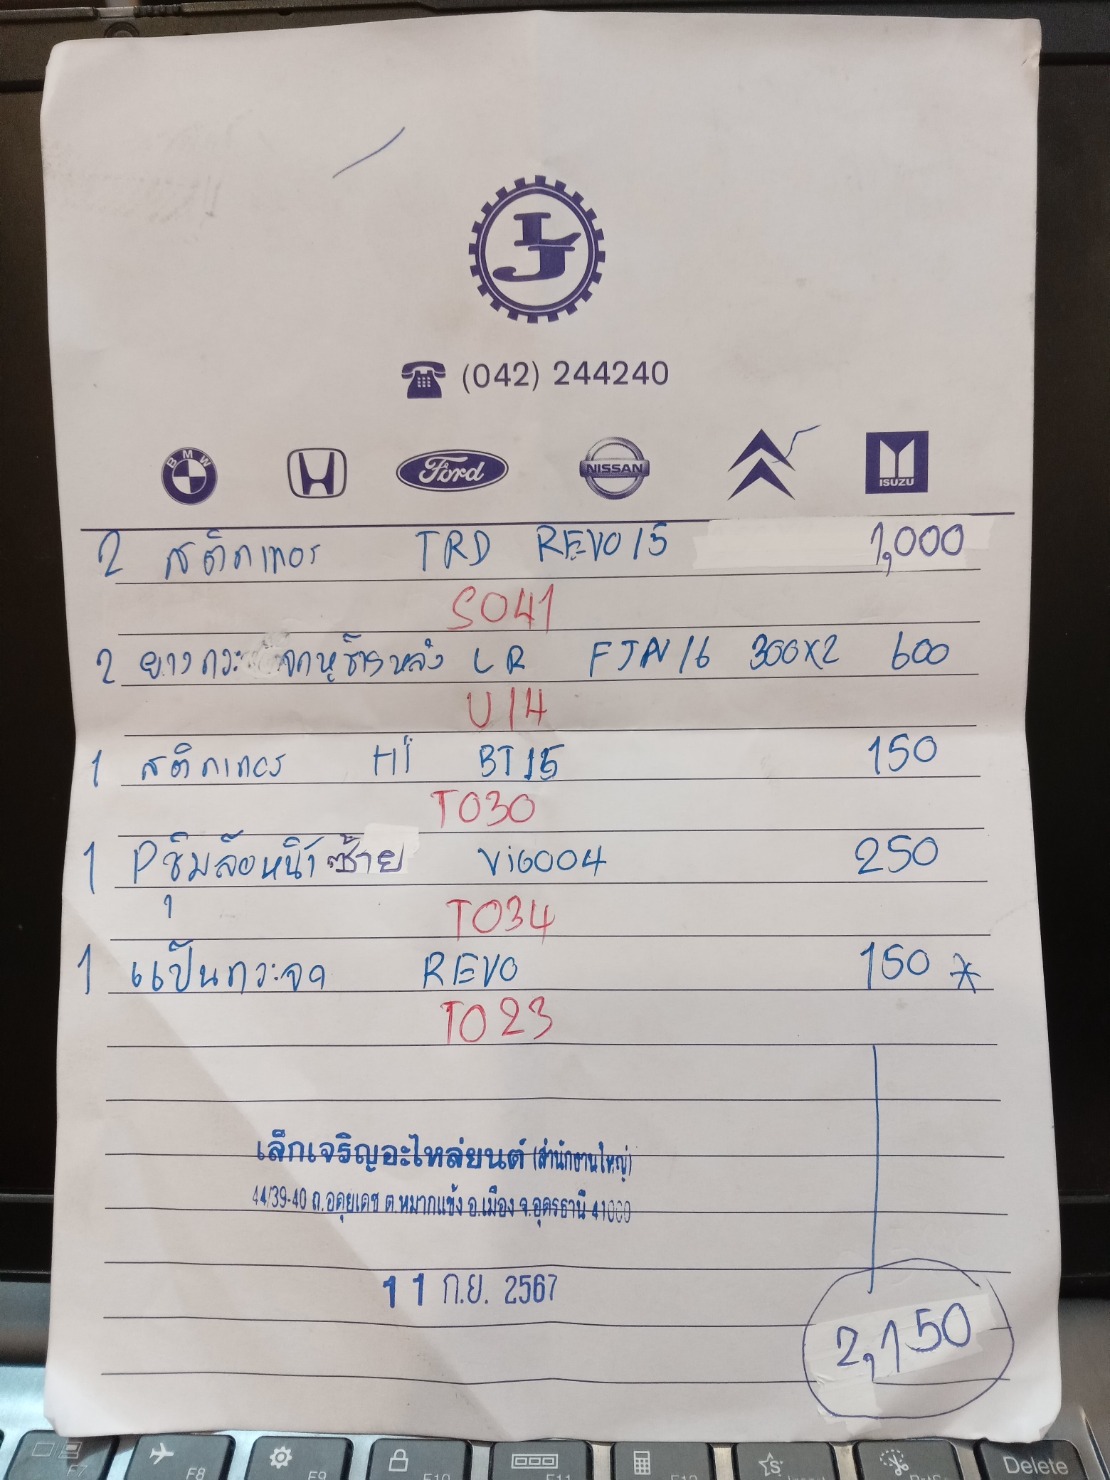 LJ
(042) 244240
BMW Ford NISSAN ISUZU
2 สติกเกอร์ TRD REVO 15 1,000
S041
2 ยางกระจกหูช้างหลัง LR 300x2 600
U14
1 สติกเกอร์ Hi BT15 150
T030
1 P ซุ้มล้อหน้าซ้าย Vi6004 250
T034
1 แป้นกระจก REVO 150 *
T023
เล็กเจริญอะไหล่ยนต์ (สำนักงานใหญ่)
44/39-40 ถ.อดุยเดช ต.หมากแข้ง อ.เมือง จ.อุดรธานี 41000
11 ก.ย. 2567
2,150
F7 F8 F9 F10 F11 F12 Insert PrtSc Delete